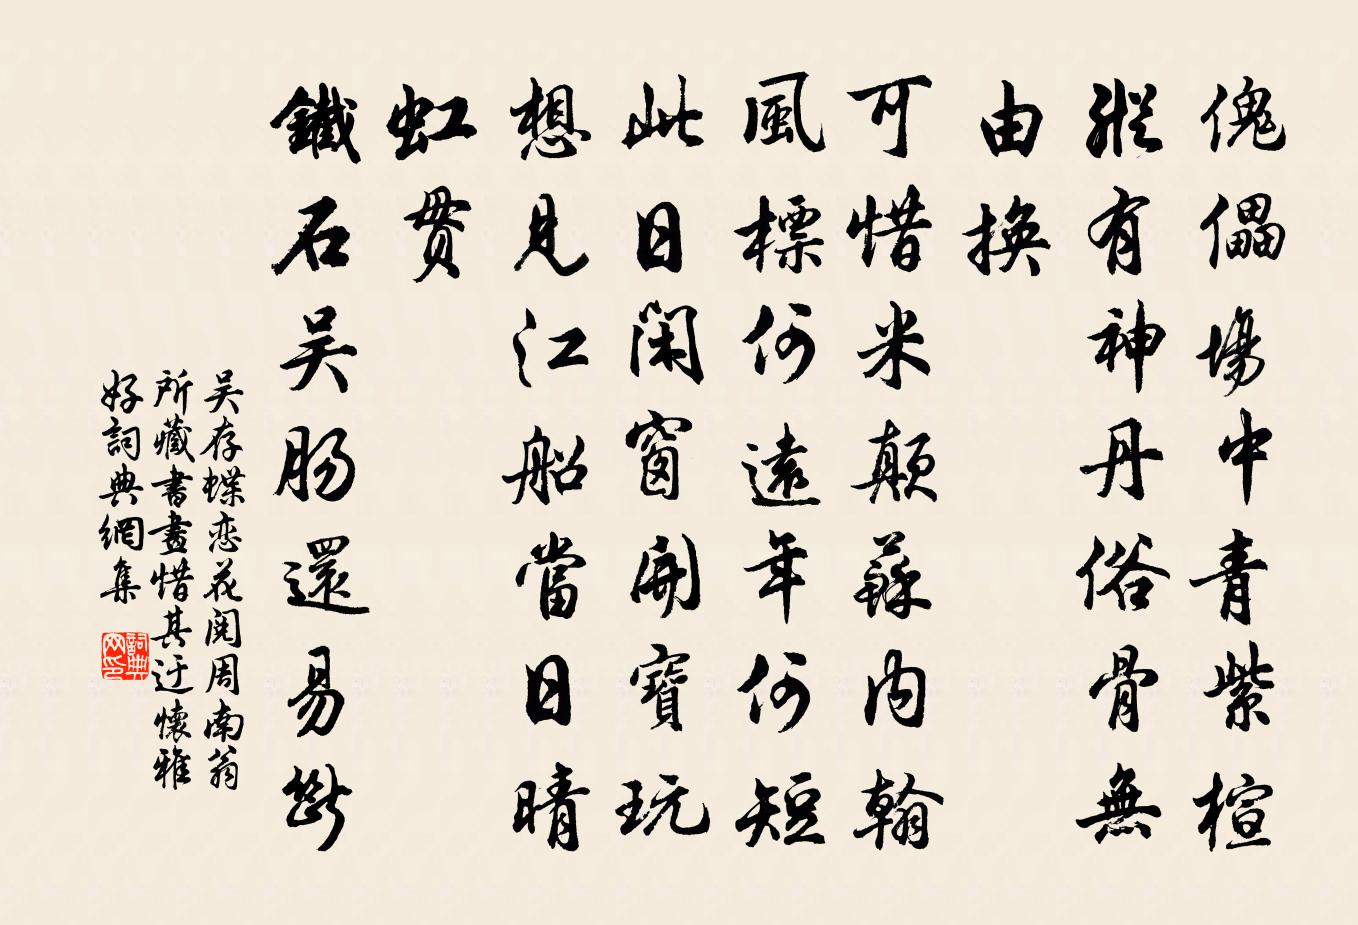 傀儡場中青紫楦
縱有神丹俗骨無
由換
可惜米顛蘇内翰
風標何遠年何短
此日閑窗開寶玩
想見江船當日晴
虹貫
鐵石吴肠還易斷
吴存蝶恋花閱周南翁
所藏書畫惜其迂懷雅
好詞典網集
詞典网印